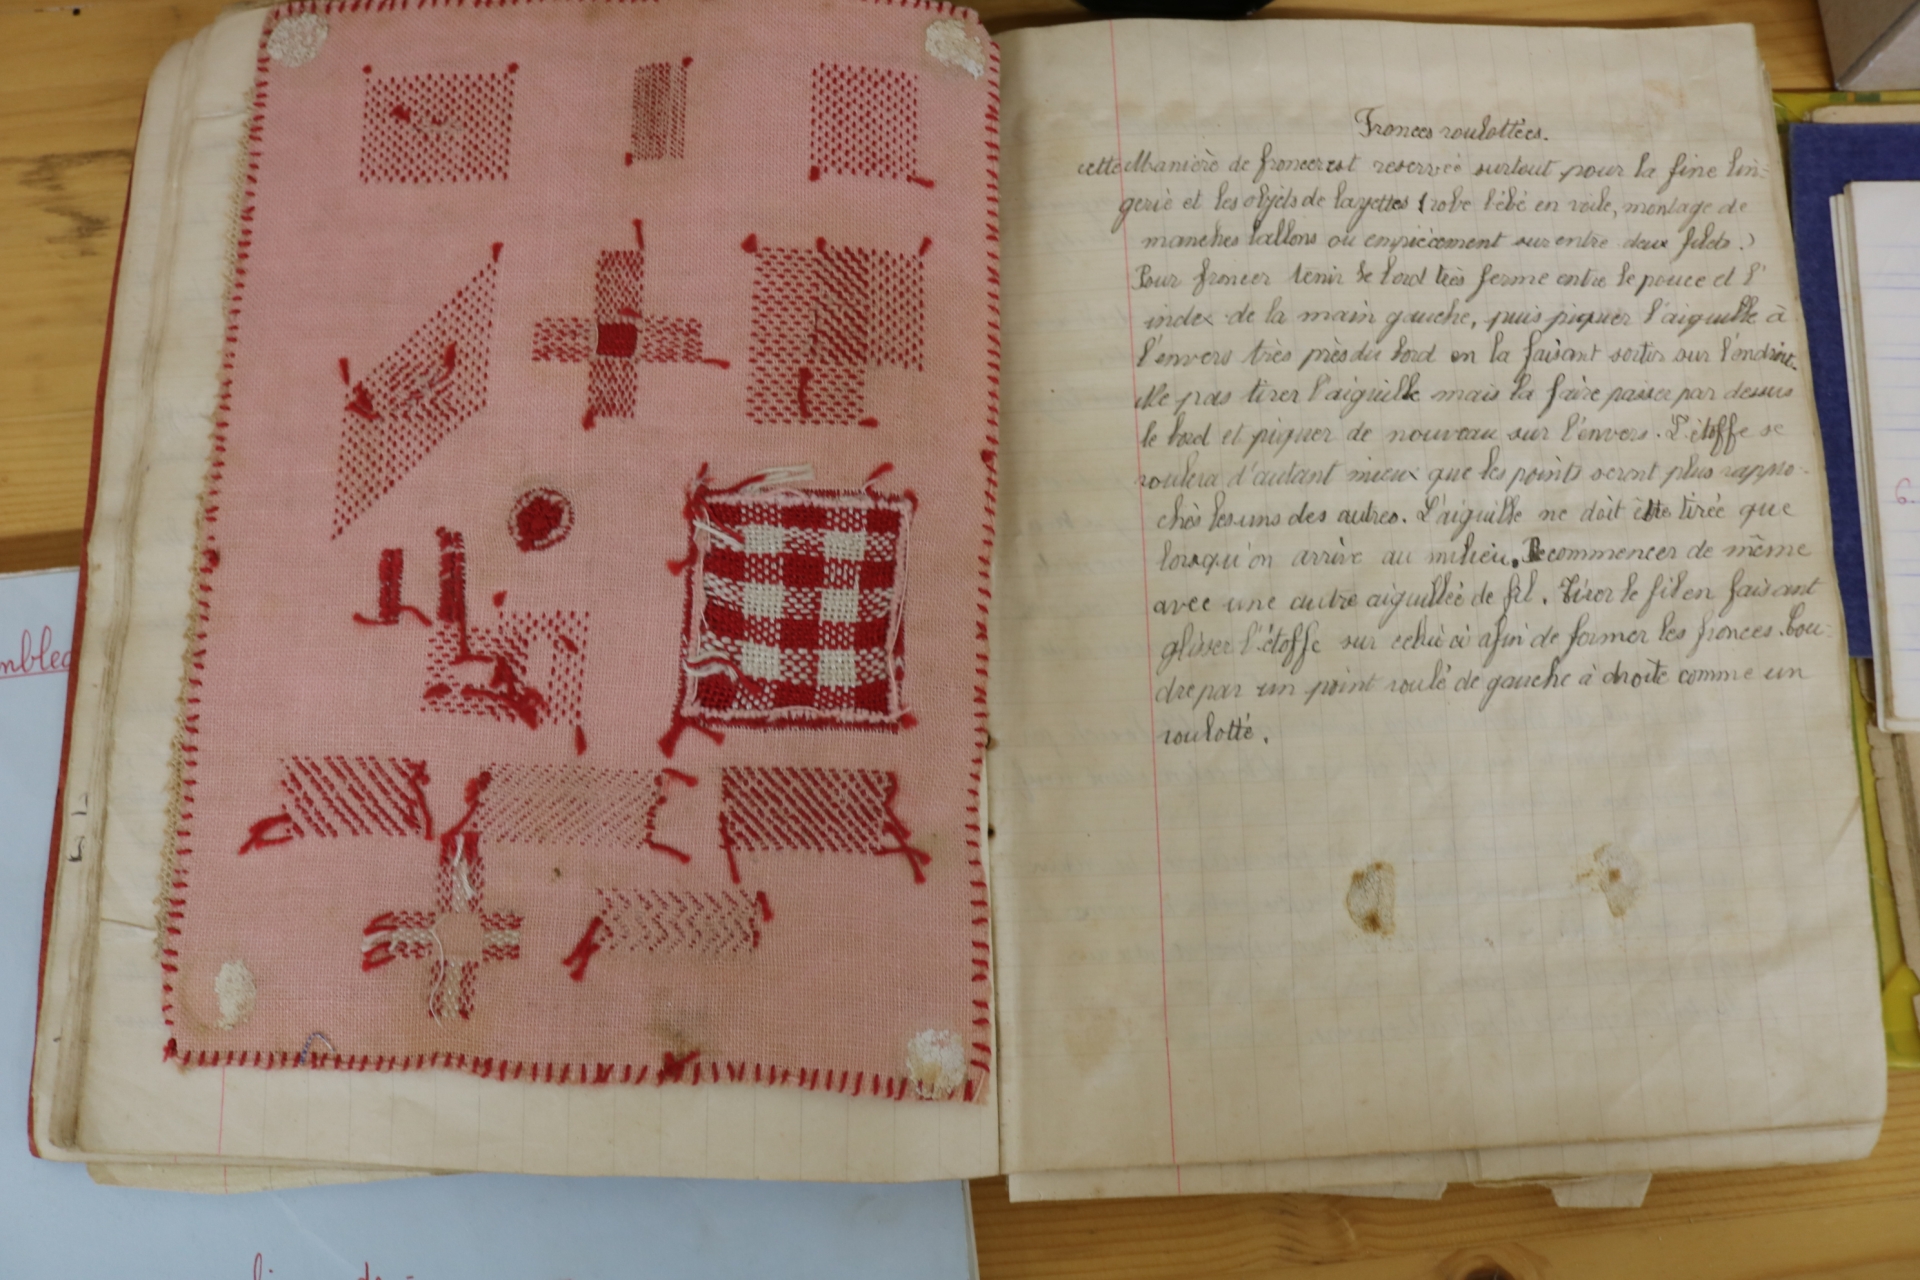 Fronces roulottées.
cette Manière de froncer est reservée surtout pour la fine lin-
gerie et les objets de layettes (robe bébé en voile, montage de
manches ballons ou empiècement sur entre deux filets.)
Pour froncer tenir le bord très ferme entre le pouce et l'
index de la main gauche, puis piquer l'aiguille à
l'envers très près du bord en la faisant sortir sur l'endroit.
Ne pas tirer l'aiguille mais la faire passer par dessus
le bord et piquer de nouveau sur l'envers. L'étoffe se
roulera d'autant mieux que les points seront plus rappro-
chés les uns des autres. L'aiguille ne doit être tirée que
lorsqu'on arrive au milieu. Recommencer de même
avec une autre aiguillée de fil. Tirer le fil en faisant
glisser l'étoffe sur celui ci afin de former les fronces. Cou-
dre par un point roulé de gauche à droite comme un
roulotté.
6.